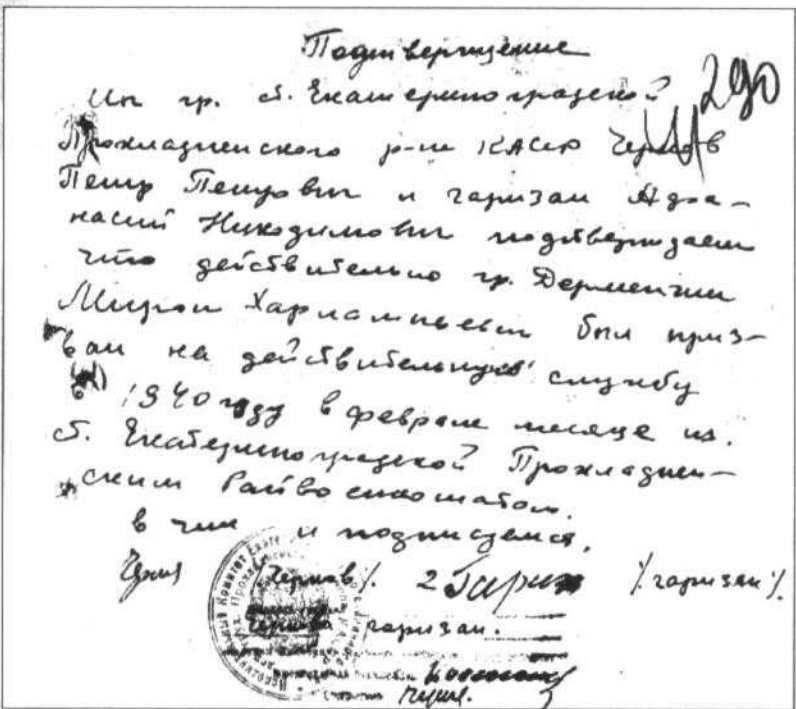 Подтверждение
290
Мы гр. ст. Екатериноградской
Прохладненского р-на КАССР Чернов
Петр Петрович и гаризан Афа-
насий Никодимович подтверждаем
что действительно гр. Дерменжи
Мирон Харлампьевич был приз-
ван на действительную службу
в 1940 году в феврале месяце из
ст. Екатериноградской Прохладнен-
ским Райвоенкоматом.
в чем и подписуемся.
/Чернов/. 2 Гариз /гаризан/.
Чернова гаризан.